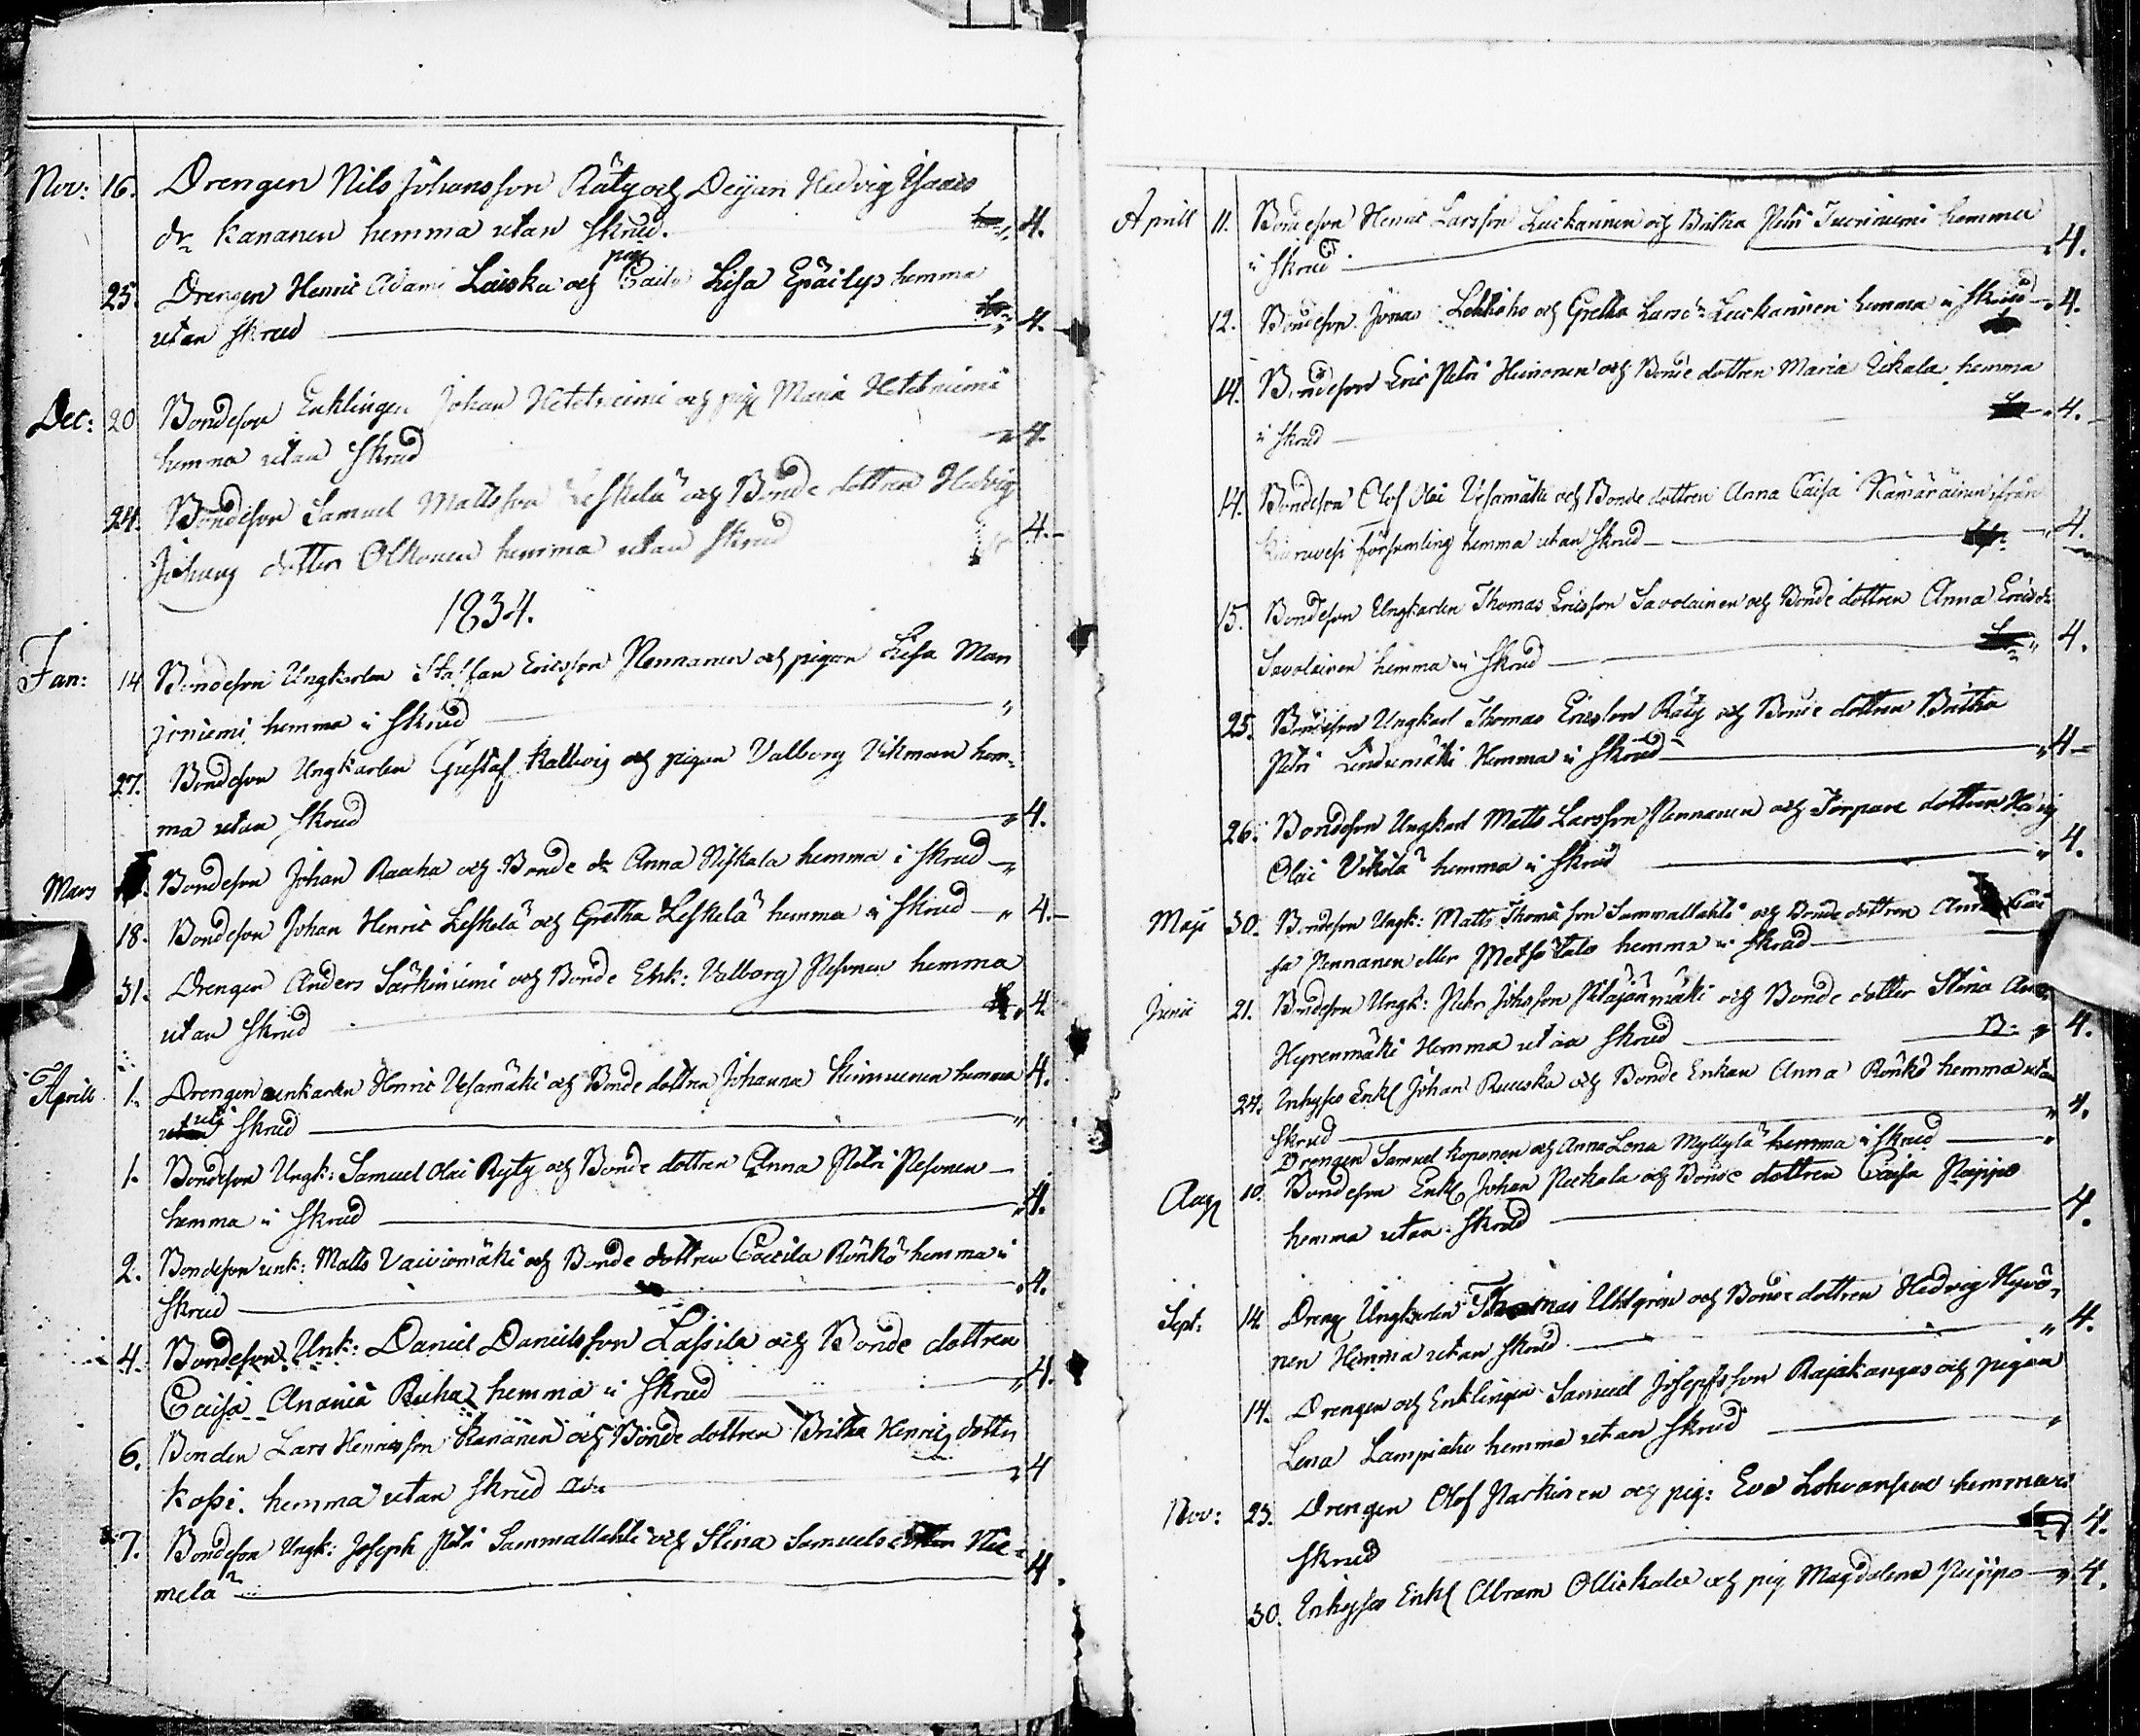 Nov: 16. Drengen Nils Johansson Räty och Deijan Hedvig Isaacs
dr Kananen hemma utan Skrud. 4.
pig
25. Drengen Henric Adami Laiska och Lisa Epäilys hemma
utan Skrud 4.
Dec: 20 Bondeson Enklingen Johan Heteniemi och pig Maria Heteniemi
hemma utan Skrud 4.
24. Bondeson Samuel Mattsson Leskelä och Bonde dottren Hedvig
Johans dotter Olkonen hemma utan Skrud 4.
1834.
Jan: 14 Bondeson Ungkarlen Staffan Ericsson Pennanen och pigan Lisa Man
jiniemi hemma i Skrud "
27. Bondeson Ungkarlen Gustaf Kallvig och pigan Valborg Vikman hem-
ma utan Skrud 4.
Mars Bondeson Johan Raaha och Bonde dr Anna Niskala hemma i Skrud "
18. Bondeson Johan Henric Leskelä och Gretha Leskelä hemma i Skrud 4.
31. Drengen Anders Särkiniemi och Bonde Enk: Valborg Pesonen hemma
utan Skrud 4.
Aprill 1. Drengen unkarlen Henric Vesamäki och Bonde dottren Johanna Kinnunen hemma 4.
utan uti Skrud "
1. Bondeson Ungk: Samuel Olai Ryty och Bonde dottren Anna Petri Pesonen
hemma i Skrud 4.
2. Bondeson unk: Matts Vaiviomäki och Bonde dottren Caecila Rönkö hemma i
Skrud 4.
4. Bondeson Unk: Daniel Danielsson Lassila och Bonde dottren
Caisa Anania Ruha hemma i Skrud 4.
6. Bonden Lars Henricsson Kananen och Bonde dottren Britha Henrics dotter
Kossi. hemma utan Skrud 4
7. Bondeson Ungk: Joseph Petri Sammallahti och Stina Samuels Nie-
melä 4.
Aprill 11. Bondeson Henric Larsson Leskarinen och Britha Petri hemma
i Skrud 4.
12. Bondeson Jonas Lehtoho och Gretha Lars dr Leskarinen hemma i Skrud 4.
14. Bondeson Eric Petri Heinonen och Bonde dottren Maria Uikala hemma
i Skrud 4.
14. Bondeson Olof Olai Vesamäki och Bonde dottren Anna Caisa Kämäräinen ifrån
Kiuruvesi församling hemma utan Skrud 4.
15. Bondeson Ungkarlen Thomas Ericsson Savolainen och Bonde dottren Anna Erics dr
Savolainen hemma i Skrud 4.
25. Bondeson Ungkarl Thomas Ericsson Räty och Bonde dottren Britha
Petri Lindumäki Hemma i Skrud 4
26. Bondeson Ungkarl Matts Larsson Pennanen och Torpare dottren Hedvig
Olai Vikilä hemma i Skrud 4.
Maji 30. Bondeson Ungk: Matts Thomasson Sammallahti och Bonde dottren Anna Cai
sa Pennanen eller Metsätalo hemma i Skrud
Junii 21. Bondeson Ungk: Petr Johsson Petäjänmäki och Bonde dotter Stina
Hyrenmäki Hemma utan Skrud 4.
24. Inhyses Enkl Johan Ruuska och Bonde Enkan Anna Rönkö hemma utan
Skrud 4.
Drengen Samuel Koponen och Anna Lena Myllylä hemma i Skrud "
Aug 10. Bondeson Enkl Johan Peckala och Bonde dottren Caisa Näppö
hemma utan Skrud 4.
Sept: 14. Dreng Ungkarlen Thomas Uhlgrén och Bonde dottren Hedvig Hyvö-
nen Hemma utan Skrud 4.
14. Drengen och Enklingen Samuel Josephsson Rajakangas och pigan
Lena Lampiaho hemma utan Skrud "
Nov: 23. Drengen Olof Narkinen och pig: Eva hemma i
Skrud 4.
30. Inhyses Enkl Abram Ollickala och pig Magdalena Puippo 4.